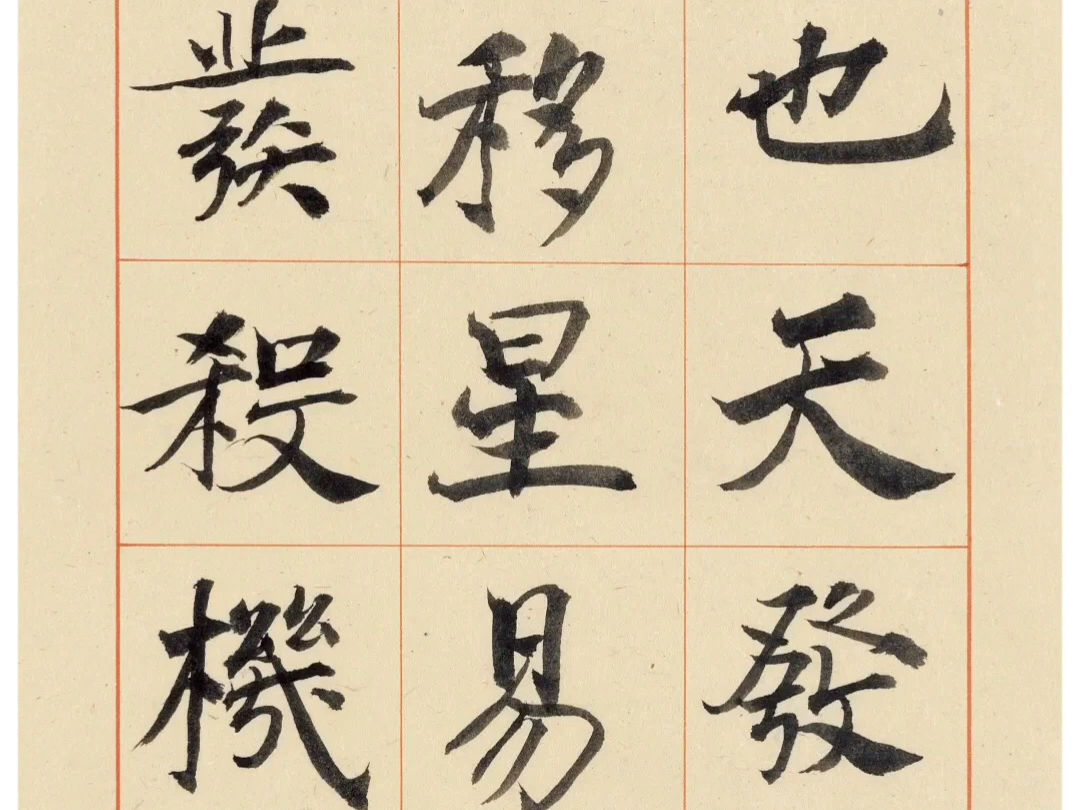 也天發
移星易
發殺機